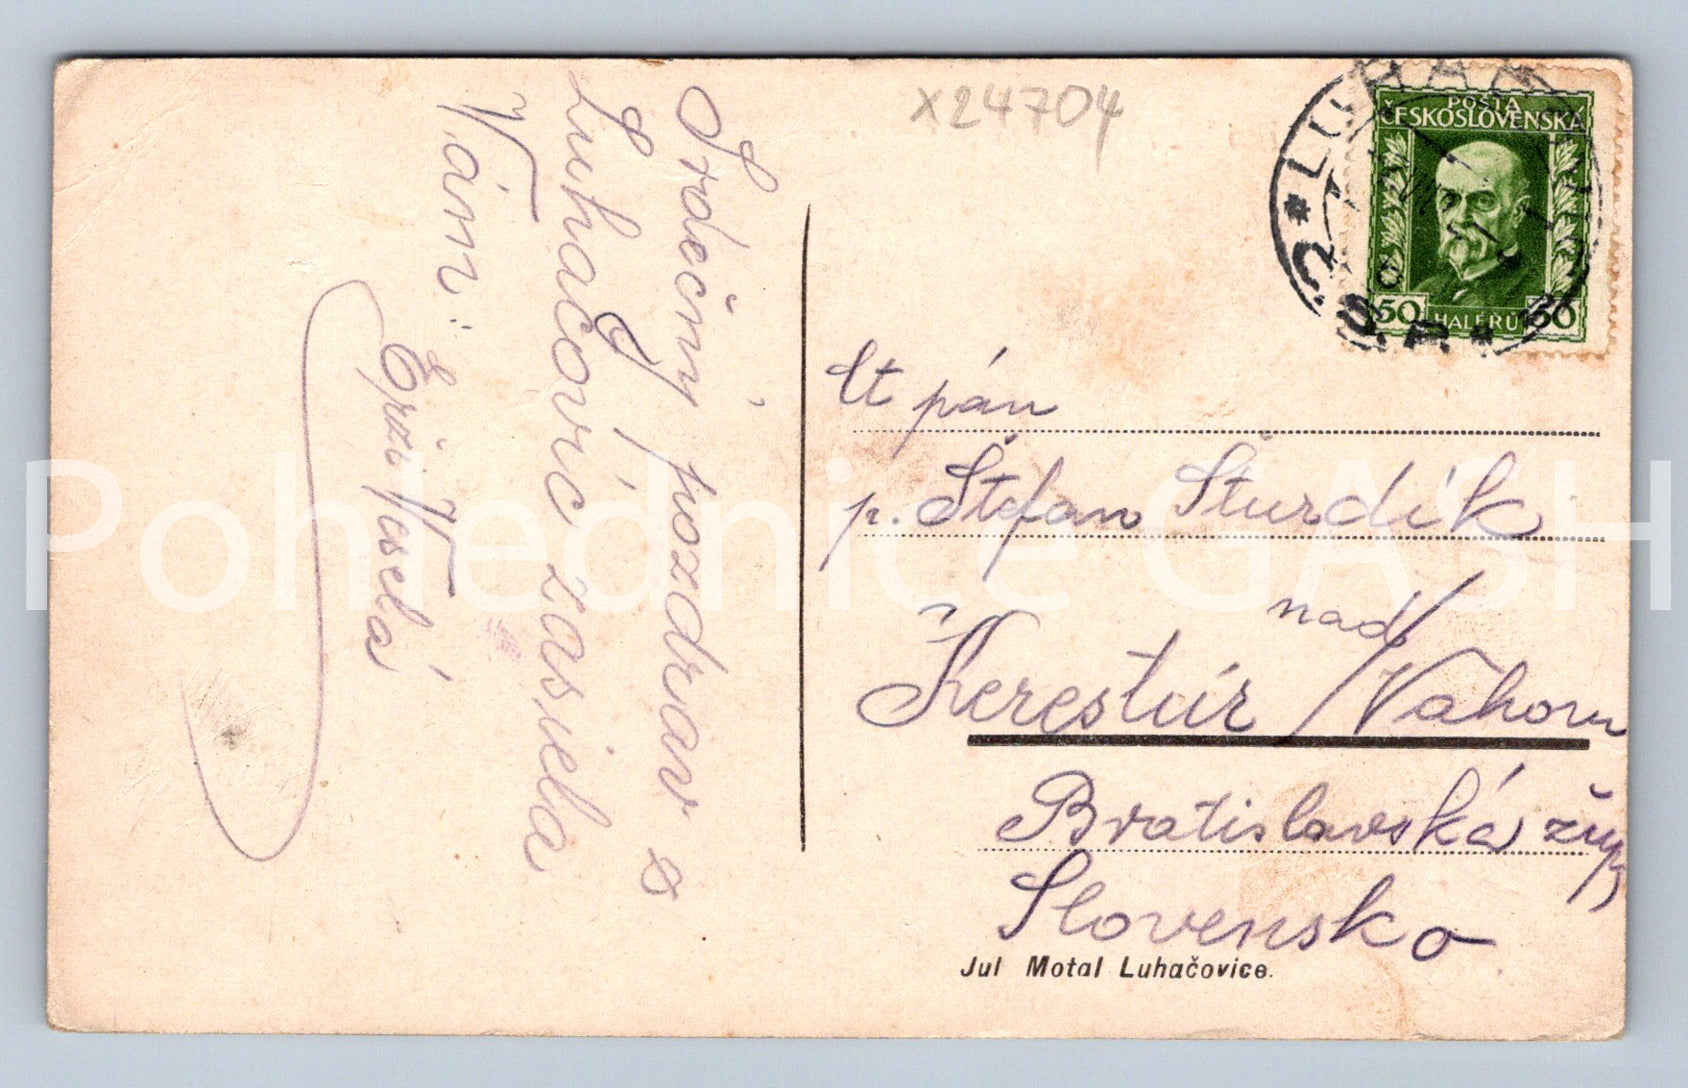 x24704
Srdečný pozdrav s
Luhačovíc zasiela
Vám:
Erži Veselá
LUHAČOVICE
ČSP
POŠTA
ČESKOSLOVENSKÁ
50 HALÉŘŮ 50
Ct pán
p. Štefan Šturdík
Kerestúr nad/Váhom
Bratislavská župa
Slovensko
Jul Motal Luhačovice.
Pohlednice GASH